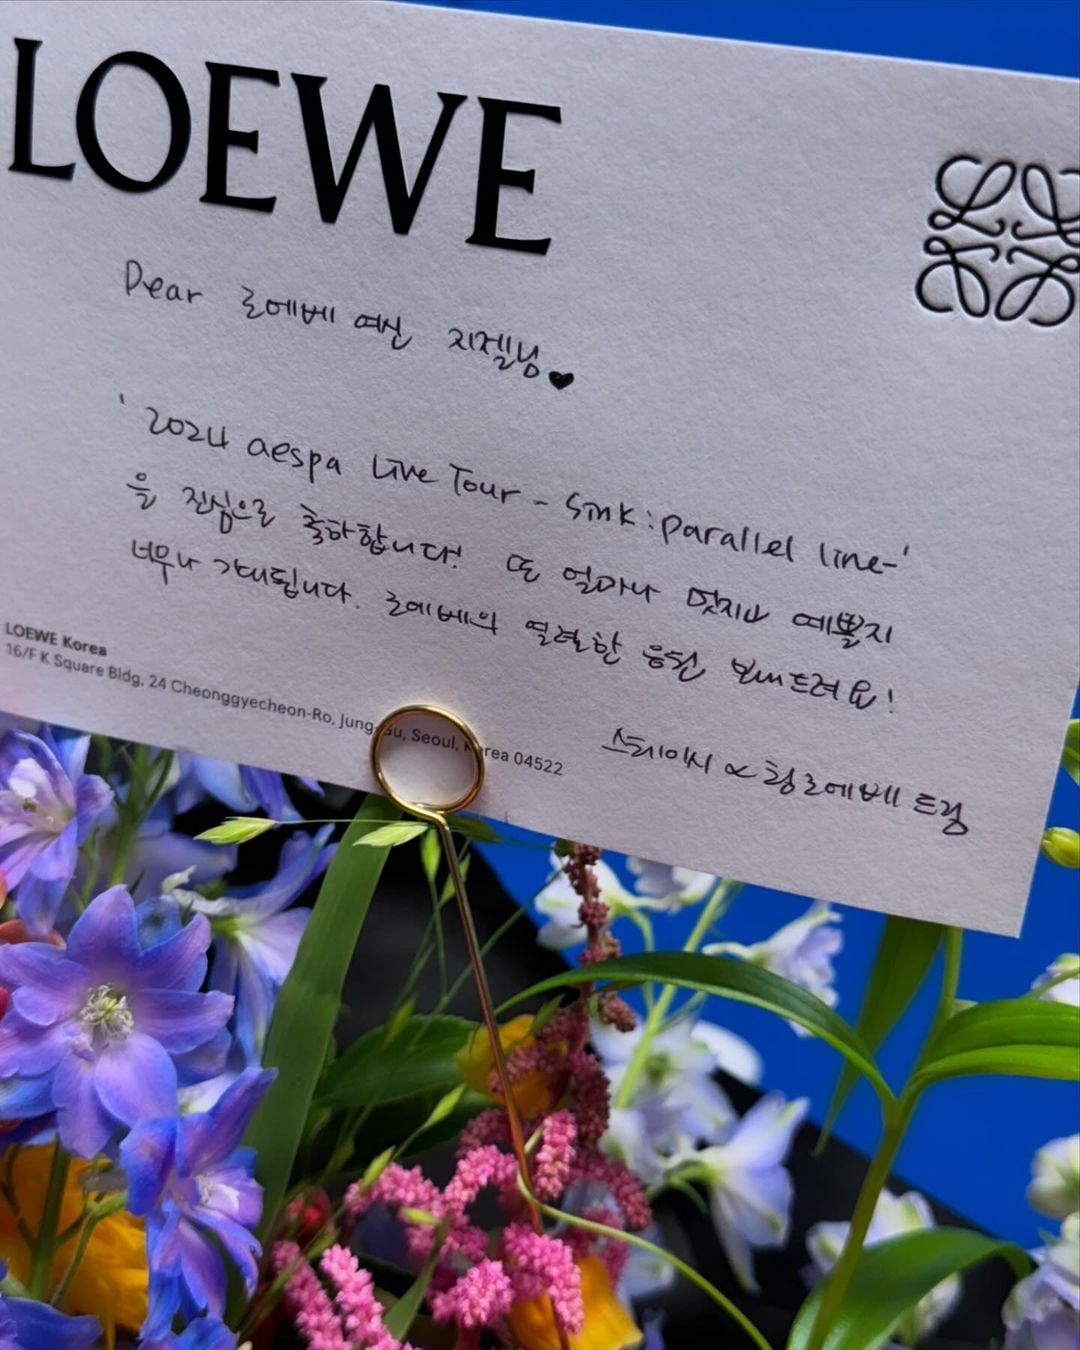 LOEWE
Dear 로에베 여신 지젤님♥
'2024 aespa Live Tour - Synk : parallel line-'
을 진심으로 축하합니다! 또 얼마나 멋지고 예쁠지
너무나 기대됩니다. 로에베의 열렬한 응원 보내드려요!
LOEWE Korea
16/F K Square Bldg, 24 Cheonggyecheon-Ro, Jung-Gu, Seoul, Korea 04522
스테이시 & 팀 로에베 드림